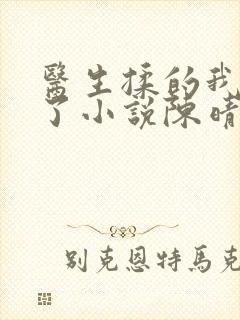 醫生揉的我
了小說陳晴
別克恩特馬克